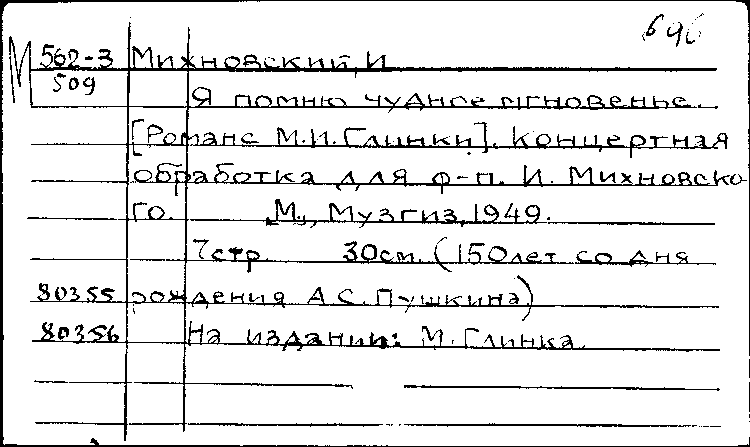 696
М 562-3 Михновский, И
509
Я помню чудное мгновенье.
[Романс М.И. Глинки]. Концертная
обработка для ф-п. И. Михновско-
го. М., Музгиз, 1949.
7 стр. 30 см. (150 лет со дня
80355 рождения А.С. Пушкина)
80356 На издании: М. Глинка.